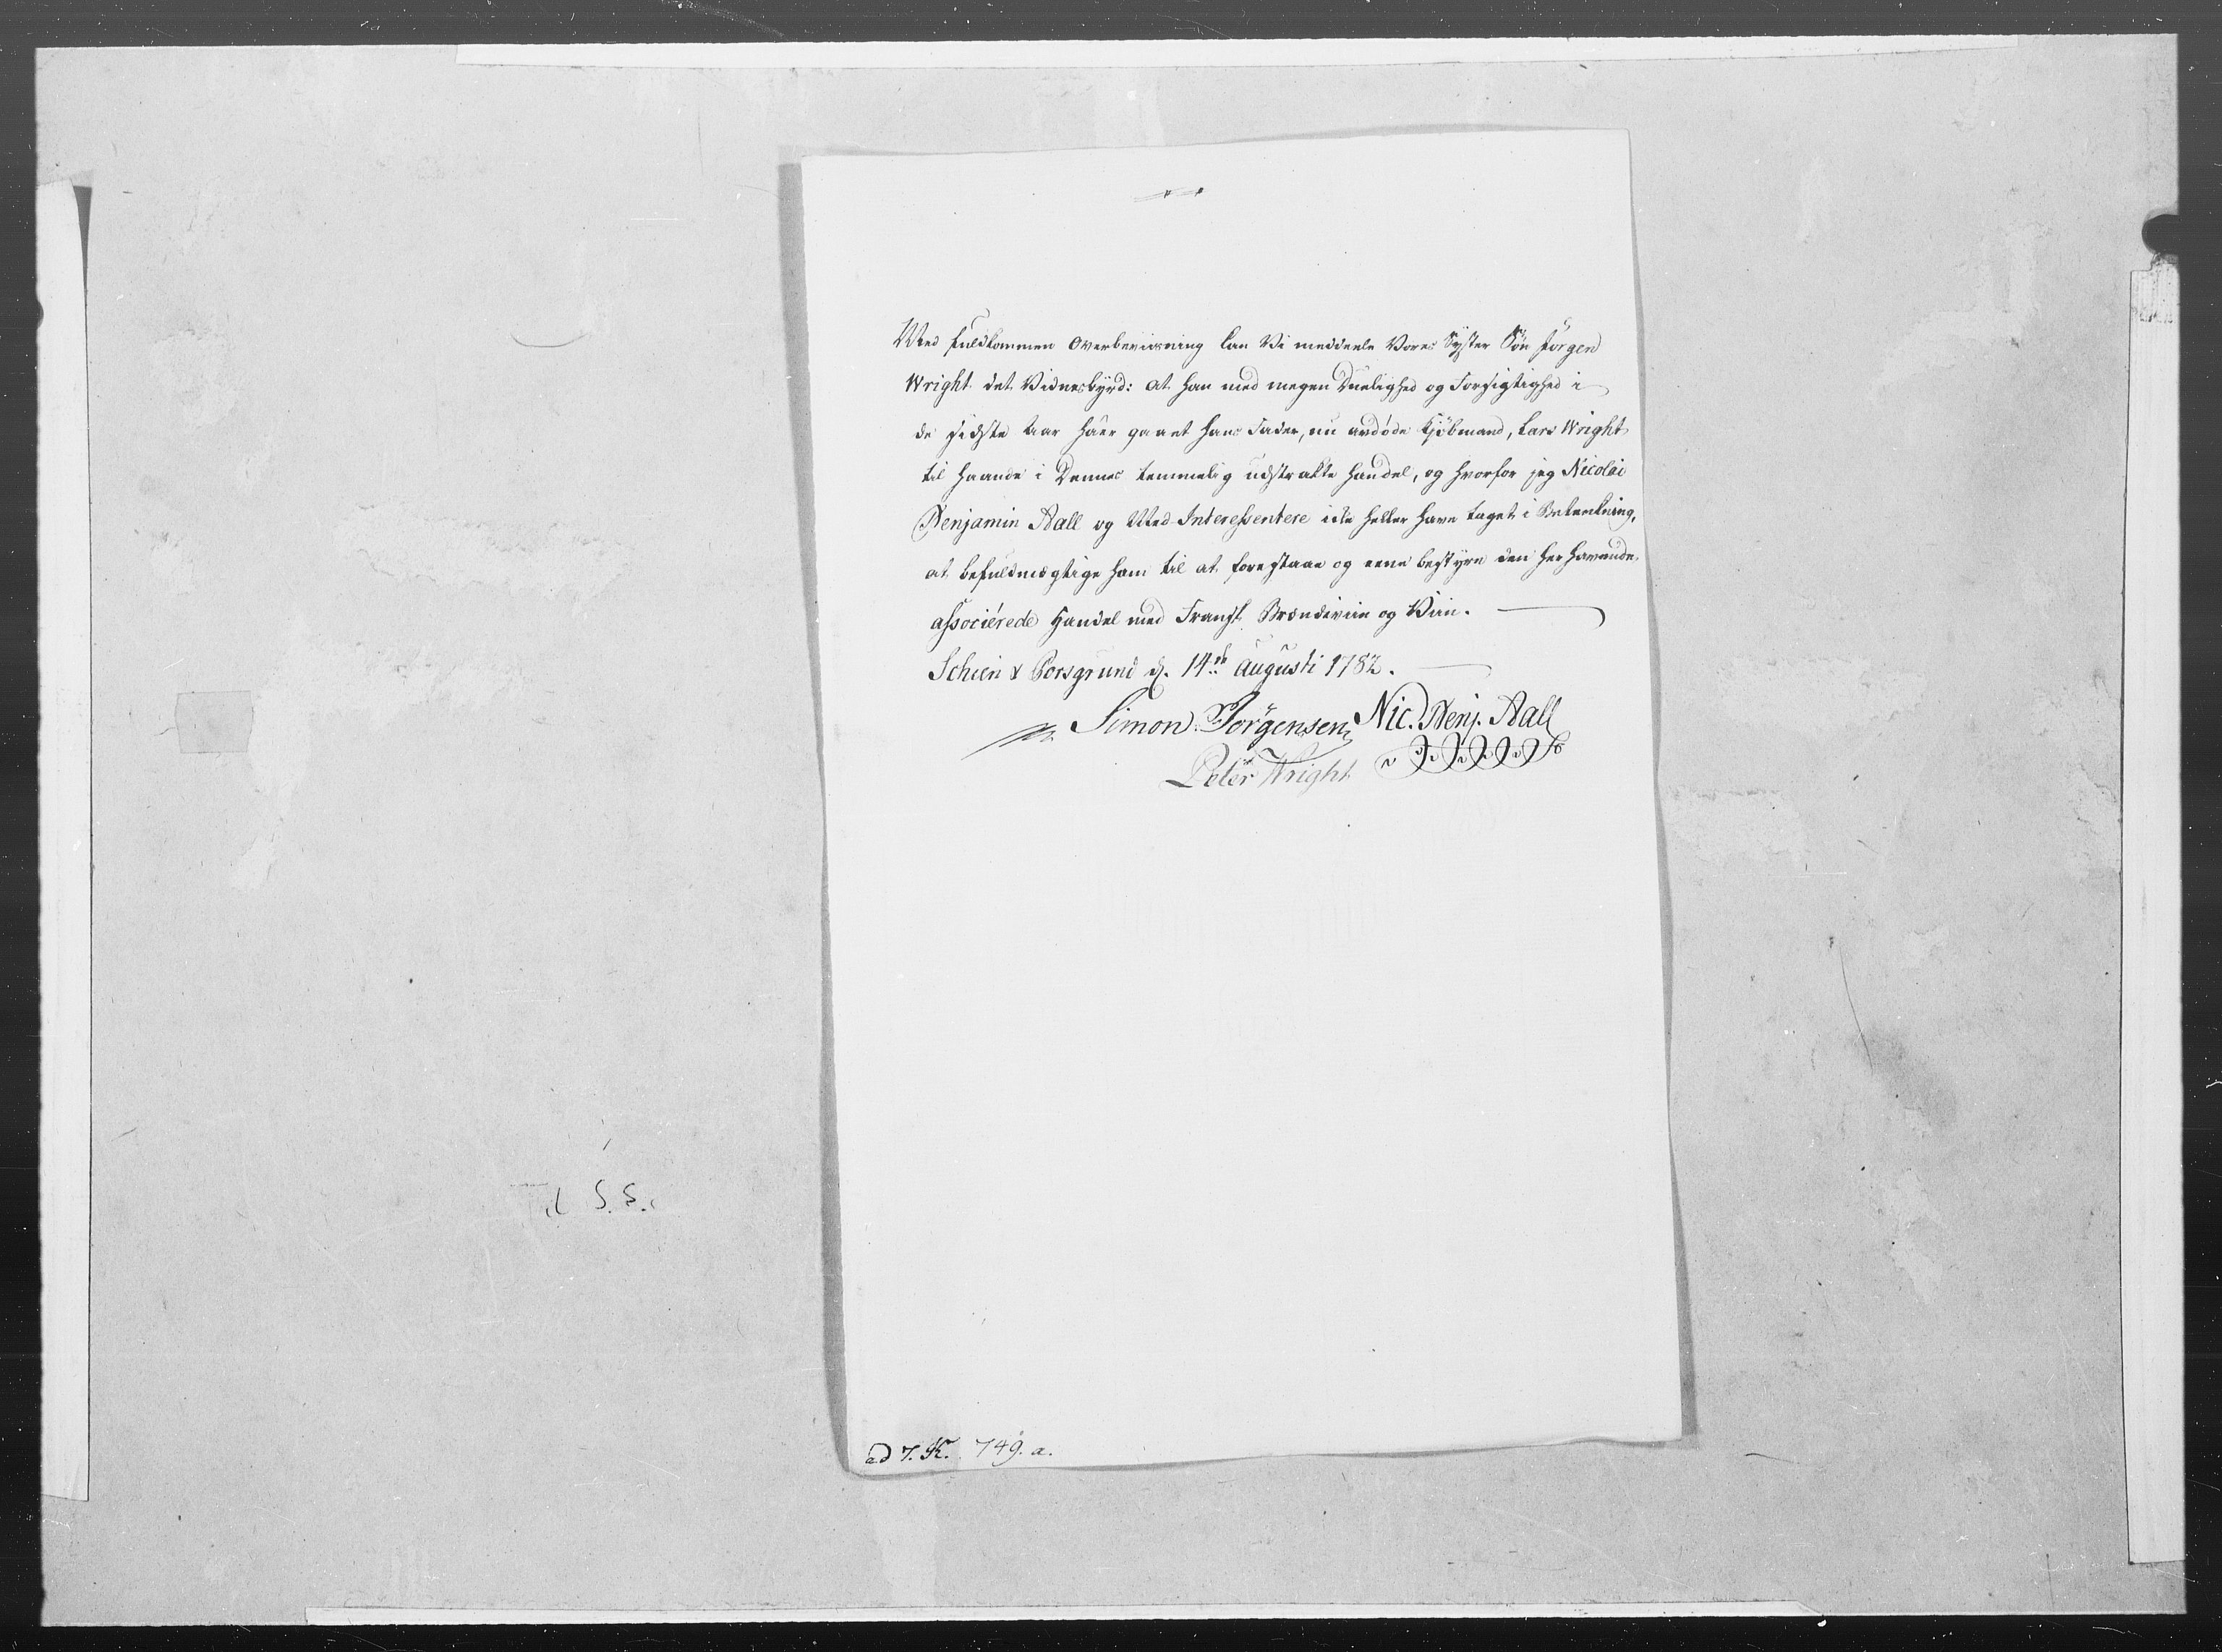 Med fuldkommen Overbeviisning kan Vi meddeele Vores Syster Søn Jørgen
Wright det Vidnesbyrd: at han med megen Duelighed og Forsigtighed i
de sidste Aar haer gaaet hans Fader, nu avdøde Kjøbmand, Lars Wright
til haande i Dennes temmelig udstrakte Handel, og hvorfor jeg Nicolai
Benjamin Aall og Med-Interessentere icke heller have taget i Betenkning,
at befuldmægtige ham til at forestaae og eene bestyre den her havende
associerede Handel med Fransk Brændeviin og Viin.
Scheen & Porsgrund d. 14de Augusti 1782.
Simon Jörgensen Nic. Benj. Aall
Peter Wright
ad 7. K. 749. a.